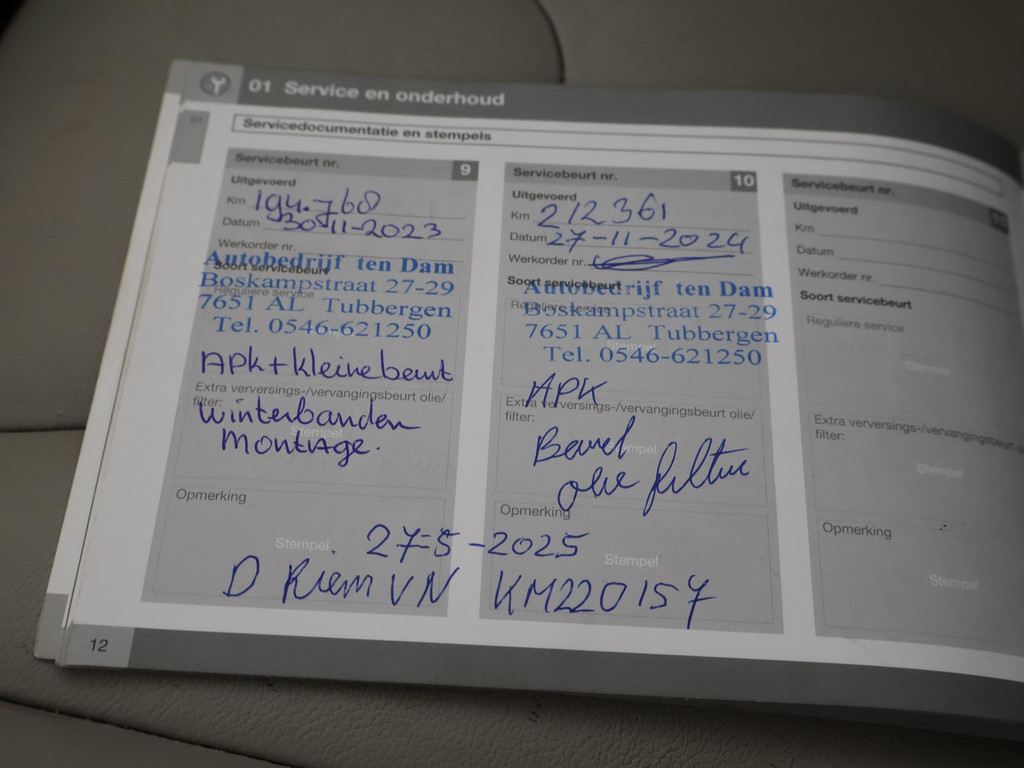 01 Service en onderhoud
Servicedocumentatie en stempels
Servicebeurt nr. 9
Uitgevoerd
Km 194.768
Datum 30-11-2023
Werkorder nr.
Autobedrijf ten Dam
Soort servicebeurt
Boskampstraat 27-29
Reguliere service
7651 AL Tubbergen
Tel. 0546-621250
APK + kleine beurt
Extra verversings-/vervangingsbeurt olie/
filter:
Winterbanden
Stempel
Montage.
Opmerking
Stempel
Servicebeurt nr. 10
Uitgevoerd
Km 212361
Datum 27-11-2024
Werkorder nr.
Soort servicebeurt
Autobedrijf ten Dam
Reguliere service
Boskampstraat 27-29
7651 AL Tubbergen
Stempel
Tel. 0546-621250
APK
Extra verversings-/vervangingsbeurt olie/
filter:
Beurt
Stempel
olie filter
Opmerking
Stempel
27-5-2025
D Riem VN KM220157
Servicebeurt nr.
Uitgevoerd
Km
Datum
Werkorder nr.
Soort servicebeurt
Reguliere service
Stempel
Extra verversings-/vervangingsbeurt
filter:
Stempel
Opmerking
Stempel
12